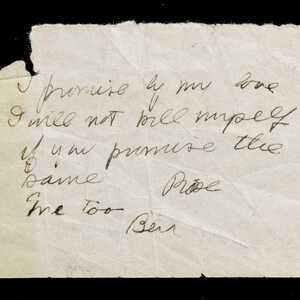 I promise by my love
I will not kill myself
if you promise the
same Rose
Me Too
Ben